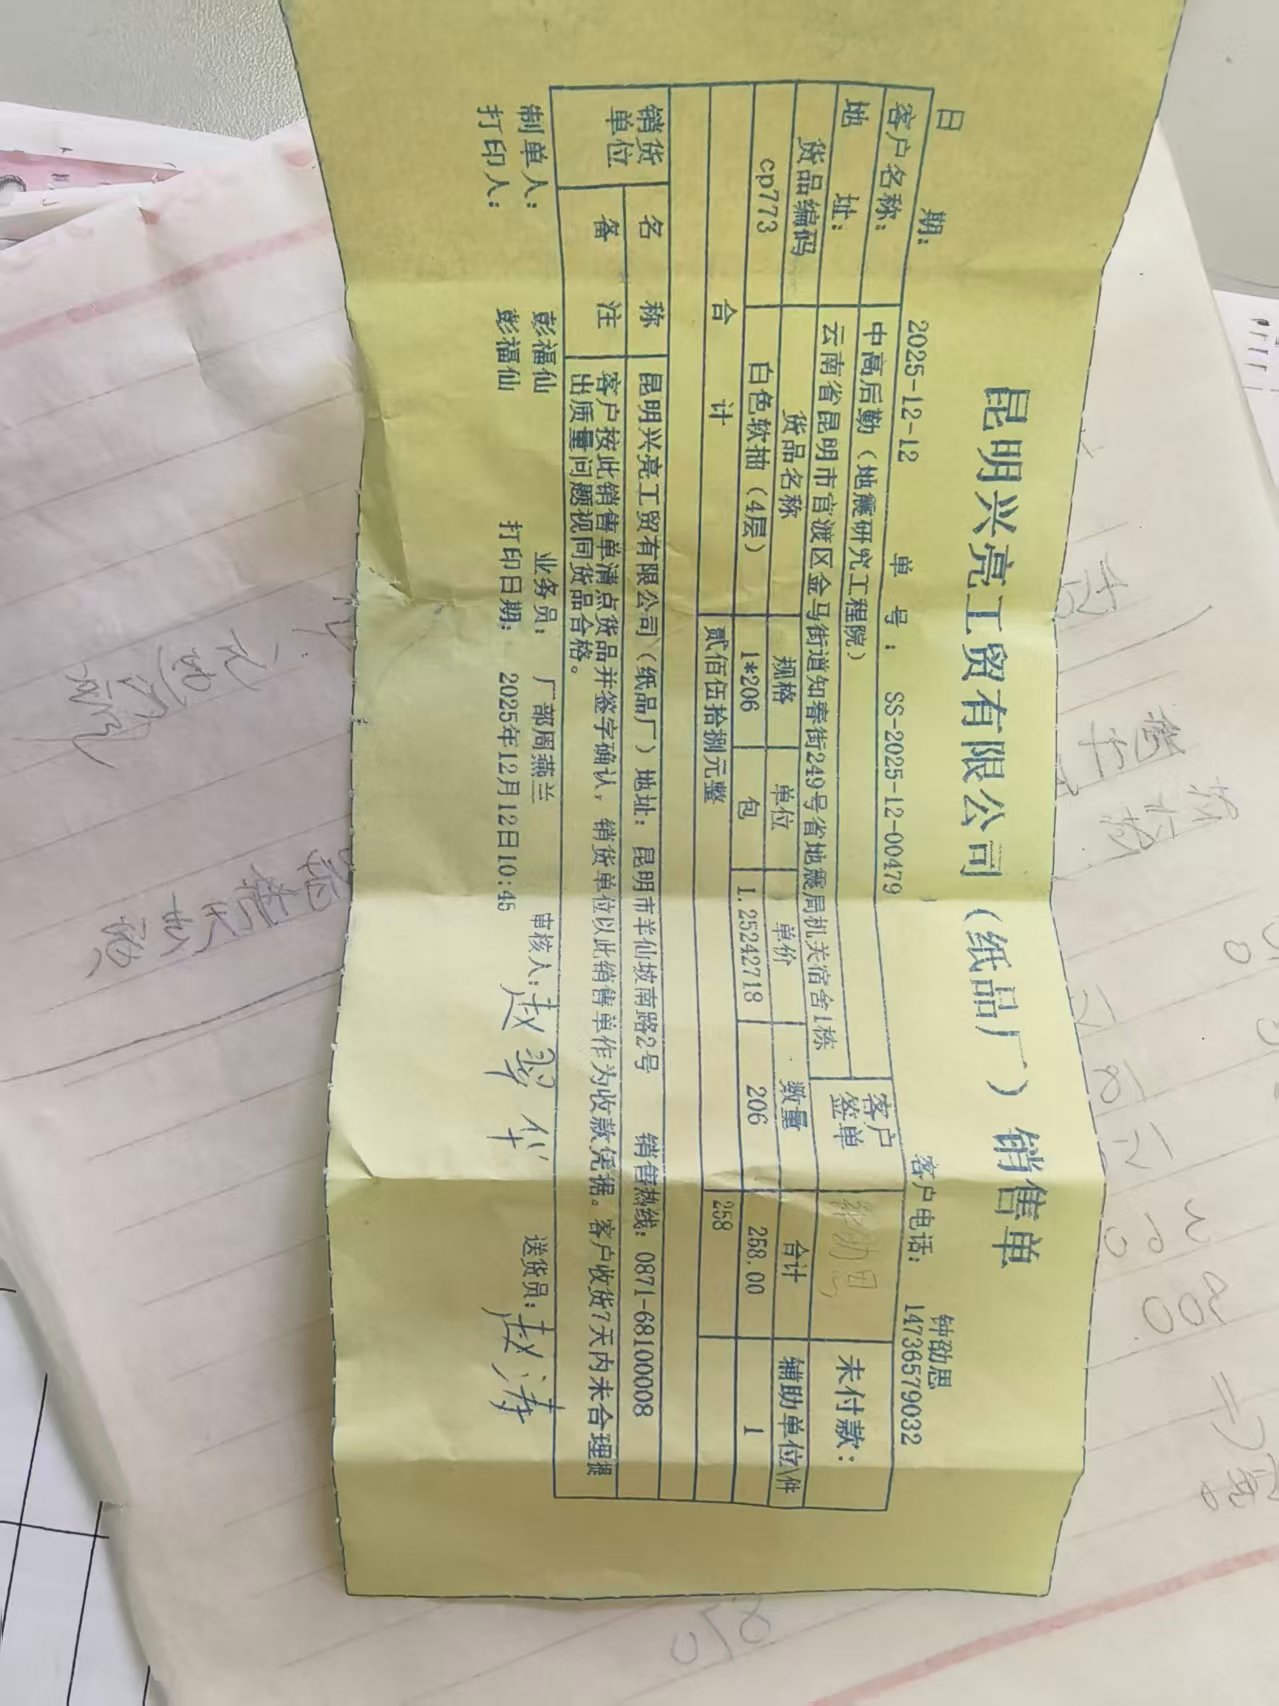 昆明兴亮工贸有限公司（纸品厂）销售单
钟劭思
日 期： 2025-12-12 单 号： SS-2025-12-00479 客户电话： 14736579032
客户名称： 中高后勤（地震研究工程院） 客户签单 未付款：
地 址： 云南省昆明市官渡区金马街道知春街249号省地震局机关宿舍1栋
货品编码 货品名称 规格 单位 单价 数量 合计 辅助单位\件
cp773 白色软抽（4层） 1*206 包 1.25242718 206 258.00 1
合 计 贰佰伍拾捌元整 258
销货单位 名 称 昆明兴亮工贸有限公司（纸品厂）地址：昆明市羊仙坡南路2号 销售热线：0871-68100008
备 注 客户按此销售单清点货品并签字确认，销货单位以此销售单作为收款凭据。客户收货7天内未合理提
出质量问题视同货品合格。
制单人： 彭福仙 业务员： 厂部周燕兰 审核人：赵翠华 送货员：赵涛
打印人： 彭福仙 打印日期： 2025年12月12日10:45